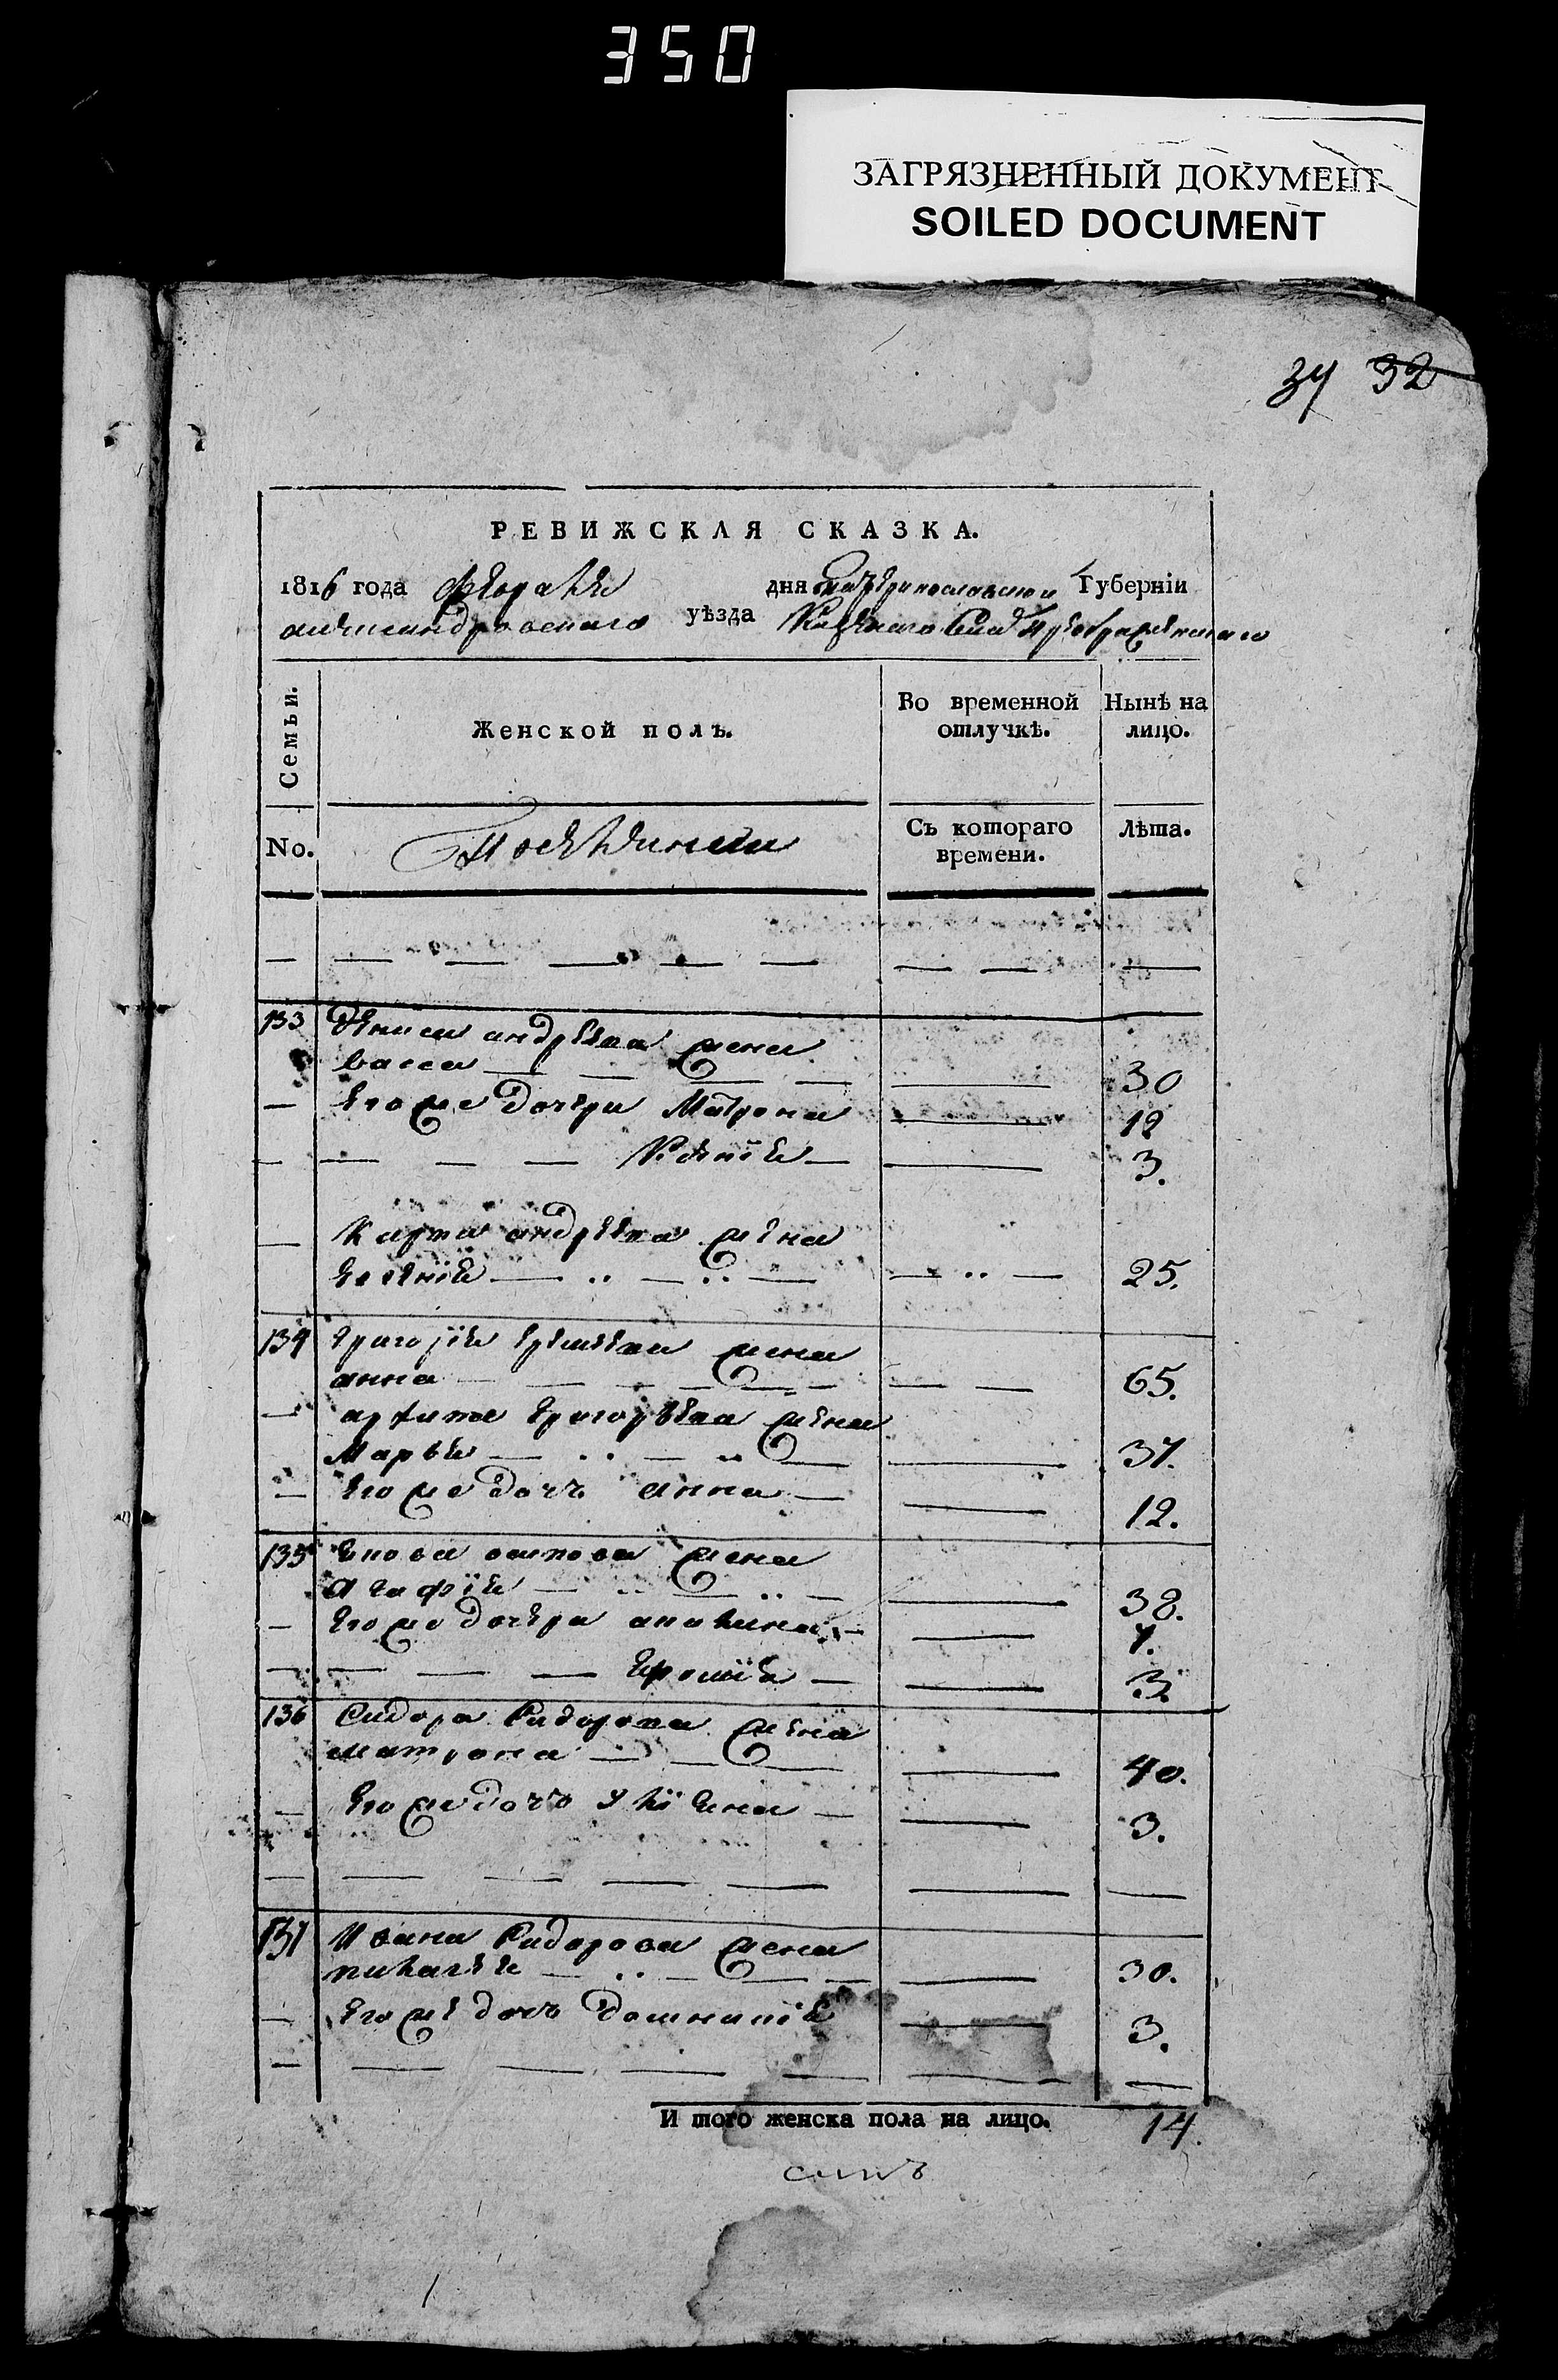 350
ЗАГРЯЗНЕННЫЙ ДОКУМЕНТ
SOILED DOCUMENT
34 32
РЕВИЖСКАЯ СКАЗКА.
1816 года февраля дня екатеринославской Губерніи
александровскаго уѣзда Преображенскаго
Семьи.
Женской полъ.
Во временной отлучкѣ.
Нынѣ на лицо.
No.
Съ котораго времени.
Лѣта.
133 Дениса андреева жена
васса 30
его же дочери Матрона 12
Ксенія 3.
Карпа андреева жена
евгенія 25.
134 Григорія жена
анна 65.
архипа григорьева жена
Марья 37.
его же дочь анна 12.
135 осипова жена
Агафія 38.
его же дочери 7.
3.
136 Сидора Сидорова жена
матрона 40.
его же дочь уліяна 3.
137 Ивана Сидорова жена
пилагея 30.
его же дочь домникія 3.
И того женска пола на лицо. 14.